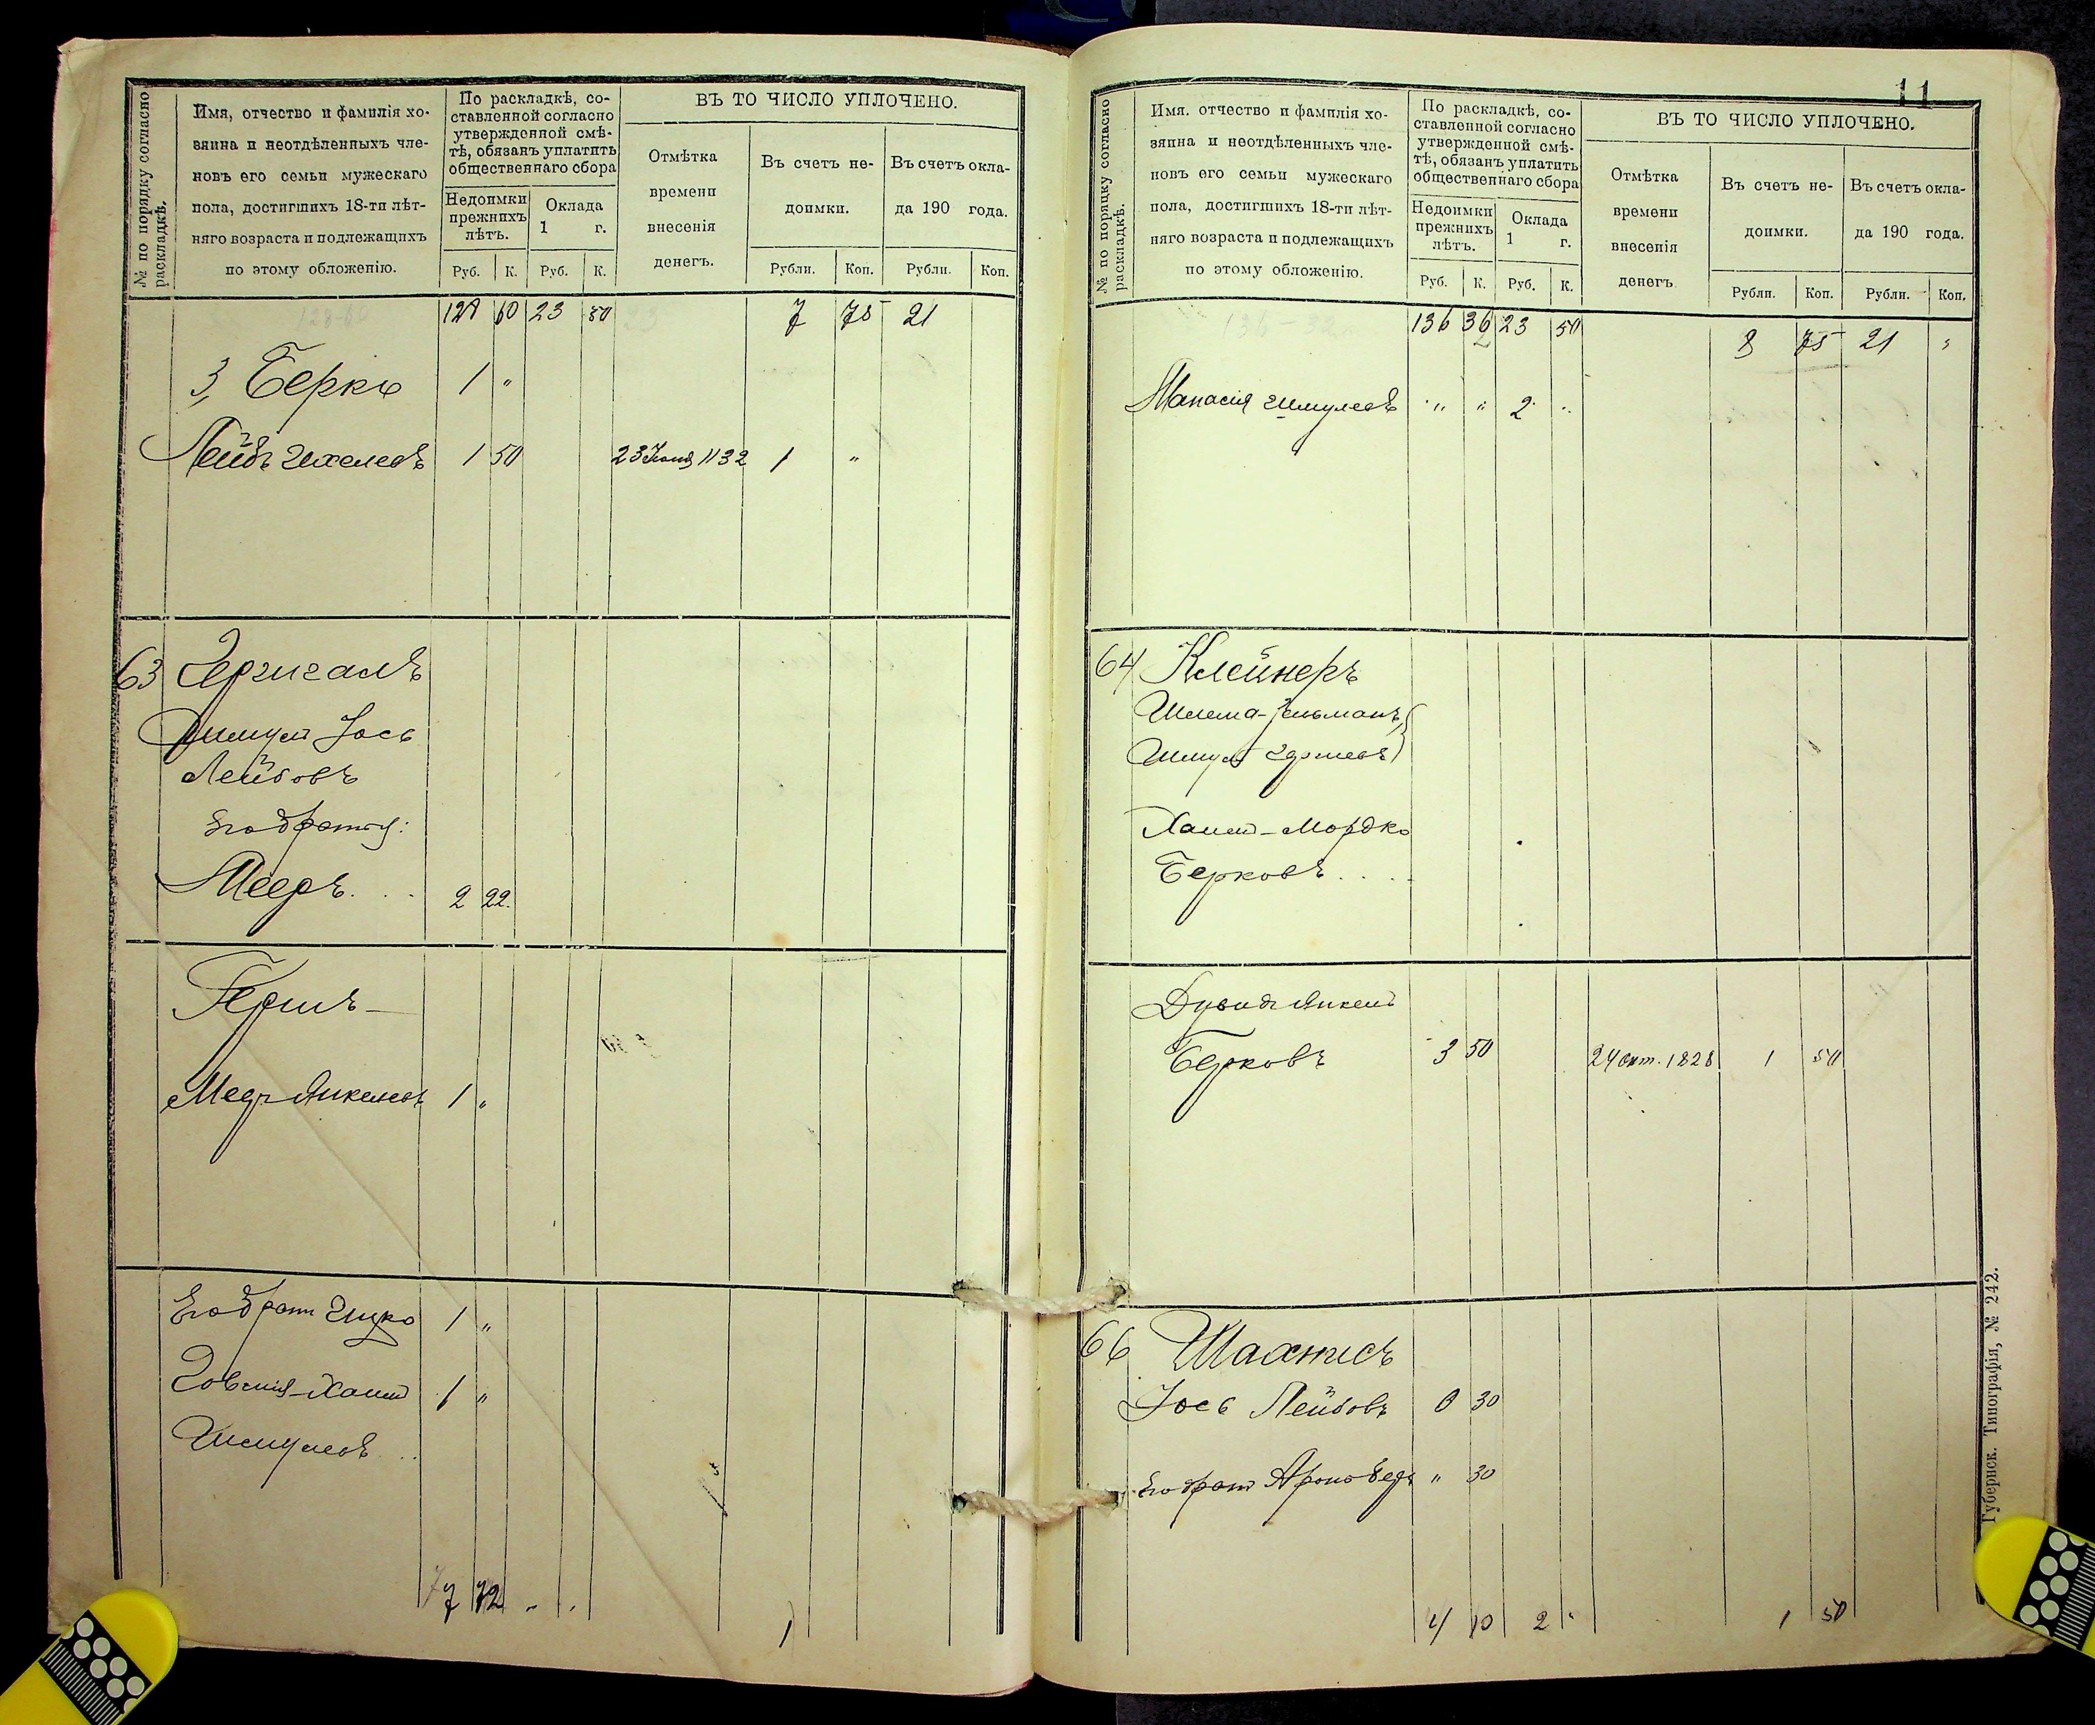 № по порядку согласно раскладкѣ.
Имя, отчество и фамилія хо-
зяина и неотдѣленныхъ чле-
новъ его семьи мужескаго
пола, достигшихъ 18-ти лѣт-
няго возраста и подлежащихъ
по этому обложенію.
По раскладкѣ, со-
ставленной согласно
утвержденной смѣ-
тѣ, обязанъ уплатить
общественнаго сбора
Недоимки
прежнихъ
лѣтъ.
Оклада
1 г.
Руб. К. Руб. К.
ВЪ ТО ЧИСЛО УПЛОЧЕНО.
Отмѣтка
времени
внесенія
денегъ.
Въ счетъ не-
доимки.
Въ счетъ окла-
да 190 года.
Рубли. Коп. Рубли. Коп.
128 60 23 50 7 75 21
3, Берко 1 "
Лейбъ Ихелевъ 1 50 23 Іюня 1132 1 "
63
Лейбовъ
Его братья:
Мееръ. . . 2 22.
Гершъ-
Меер Янкелевъ 1 "
Его братъ Ицко 1 "
Шмулевъ ...
7 72 " "
1
11
№ по порядку согласно раскладкѣ.
Имя. отчество и фамилія хо-
зяина и неотдѣленныхъ чле-
новъ его семьи мужескаго
пола, достигшихъ 18-ти лѣт-
няго возраста и подлежащихъ
по этому обложенію.
По раскладкѣ, со-
ставленной согласно
утвержденной смѣ-
тѣ, обязанъ уплатить
общественнаго сбора
Недоимки
прежнихъ
лѣтъ.
Оклада
1 г.
Руб. К. Руб. К.
ВЪ ТО ЧИСЛО УПЛОЧЕНО.
Отмѣтка
времени
внесенія
денегъ.
Въ счетъ не-
доимки.
Въ счетъ окла-
да 190 года.
Рубли. Коп. Рубли. Коп.
136 32 23 50 8 75 21 "
Манасія Шмулевъ " " 2 "
64 Клейнеръ
Хаим-Мордко
Берковъ ....
Дувидъ Янкель
Берковъ 3 50 24 окт. 1828 1 50
66 Шахнисъ
Іось Лейбовъ 0 30
Его братъ " 30
4 10 2 " 1 50
Губернск. Типографія, № 242.